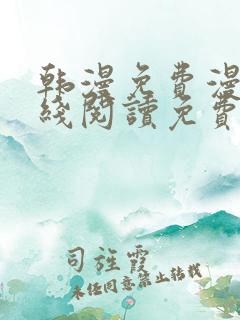 韩漫免费漫
线阅读免费
司旌霞
未经同意禁止转载